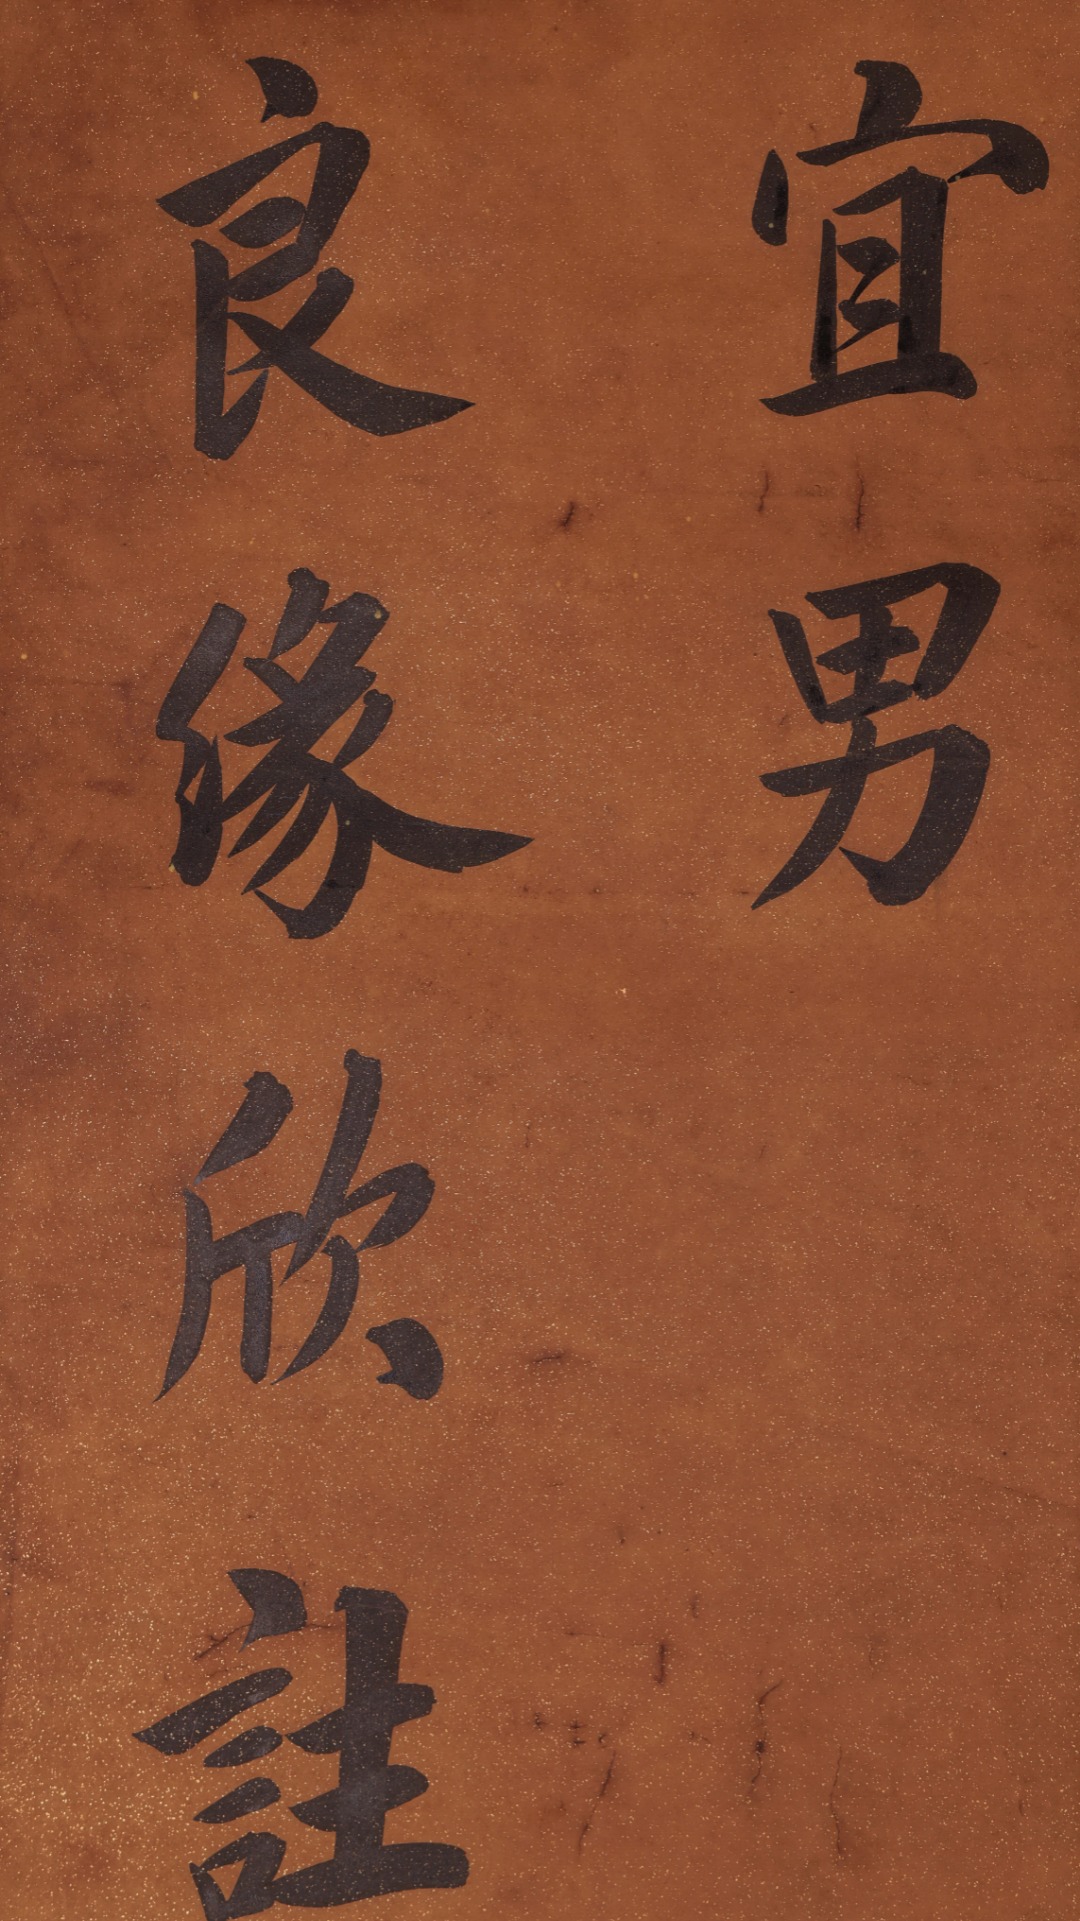 宜男
良缘欣註